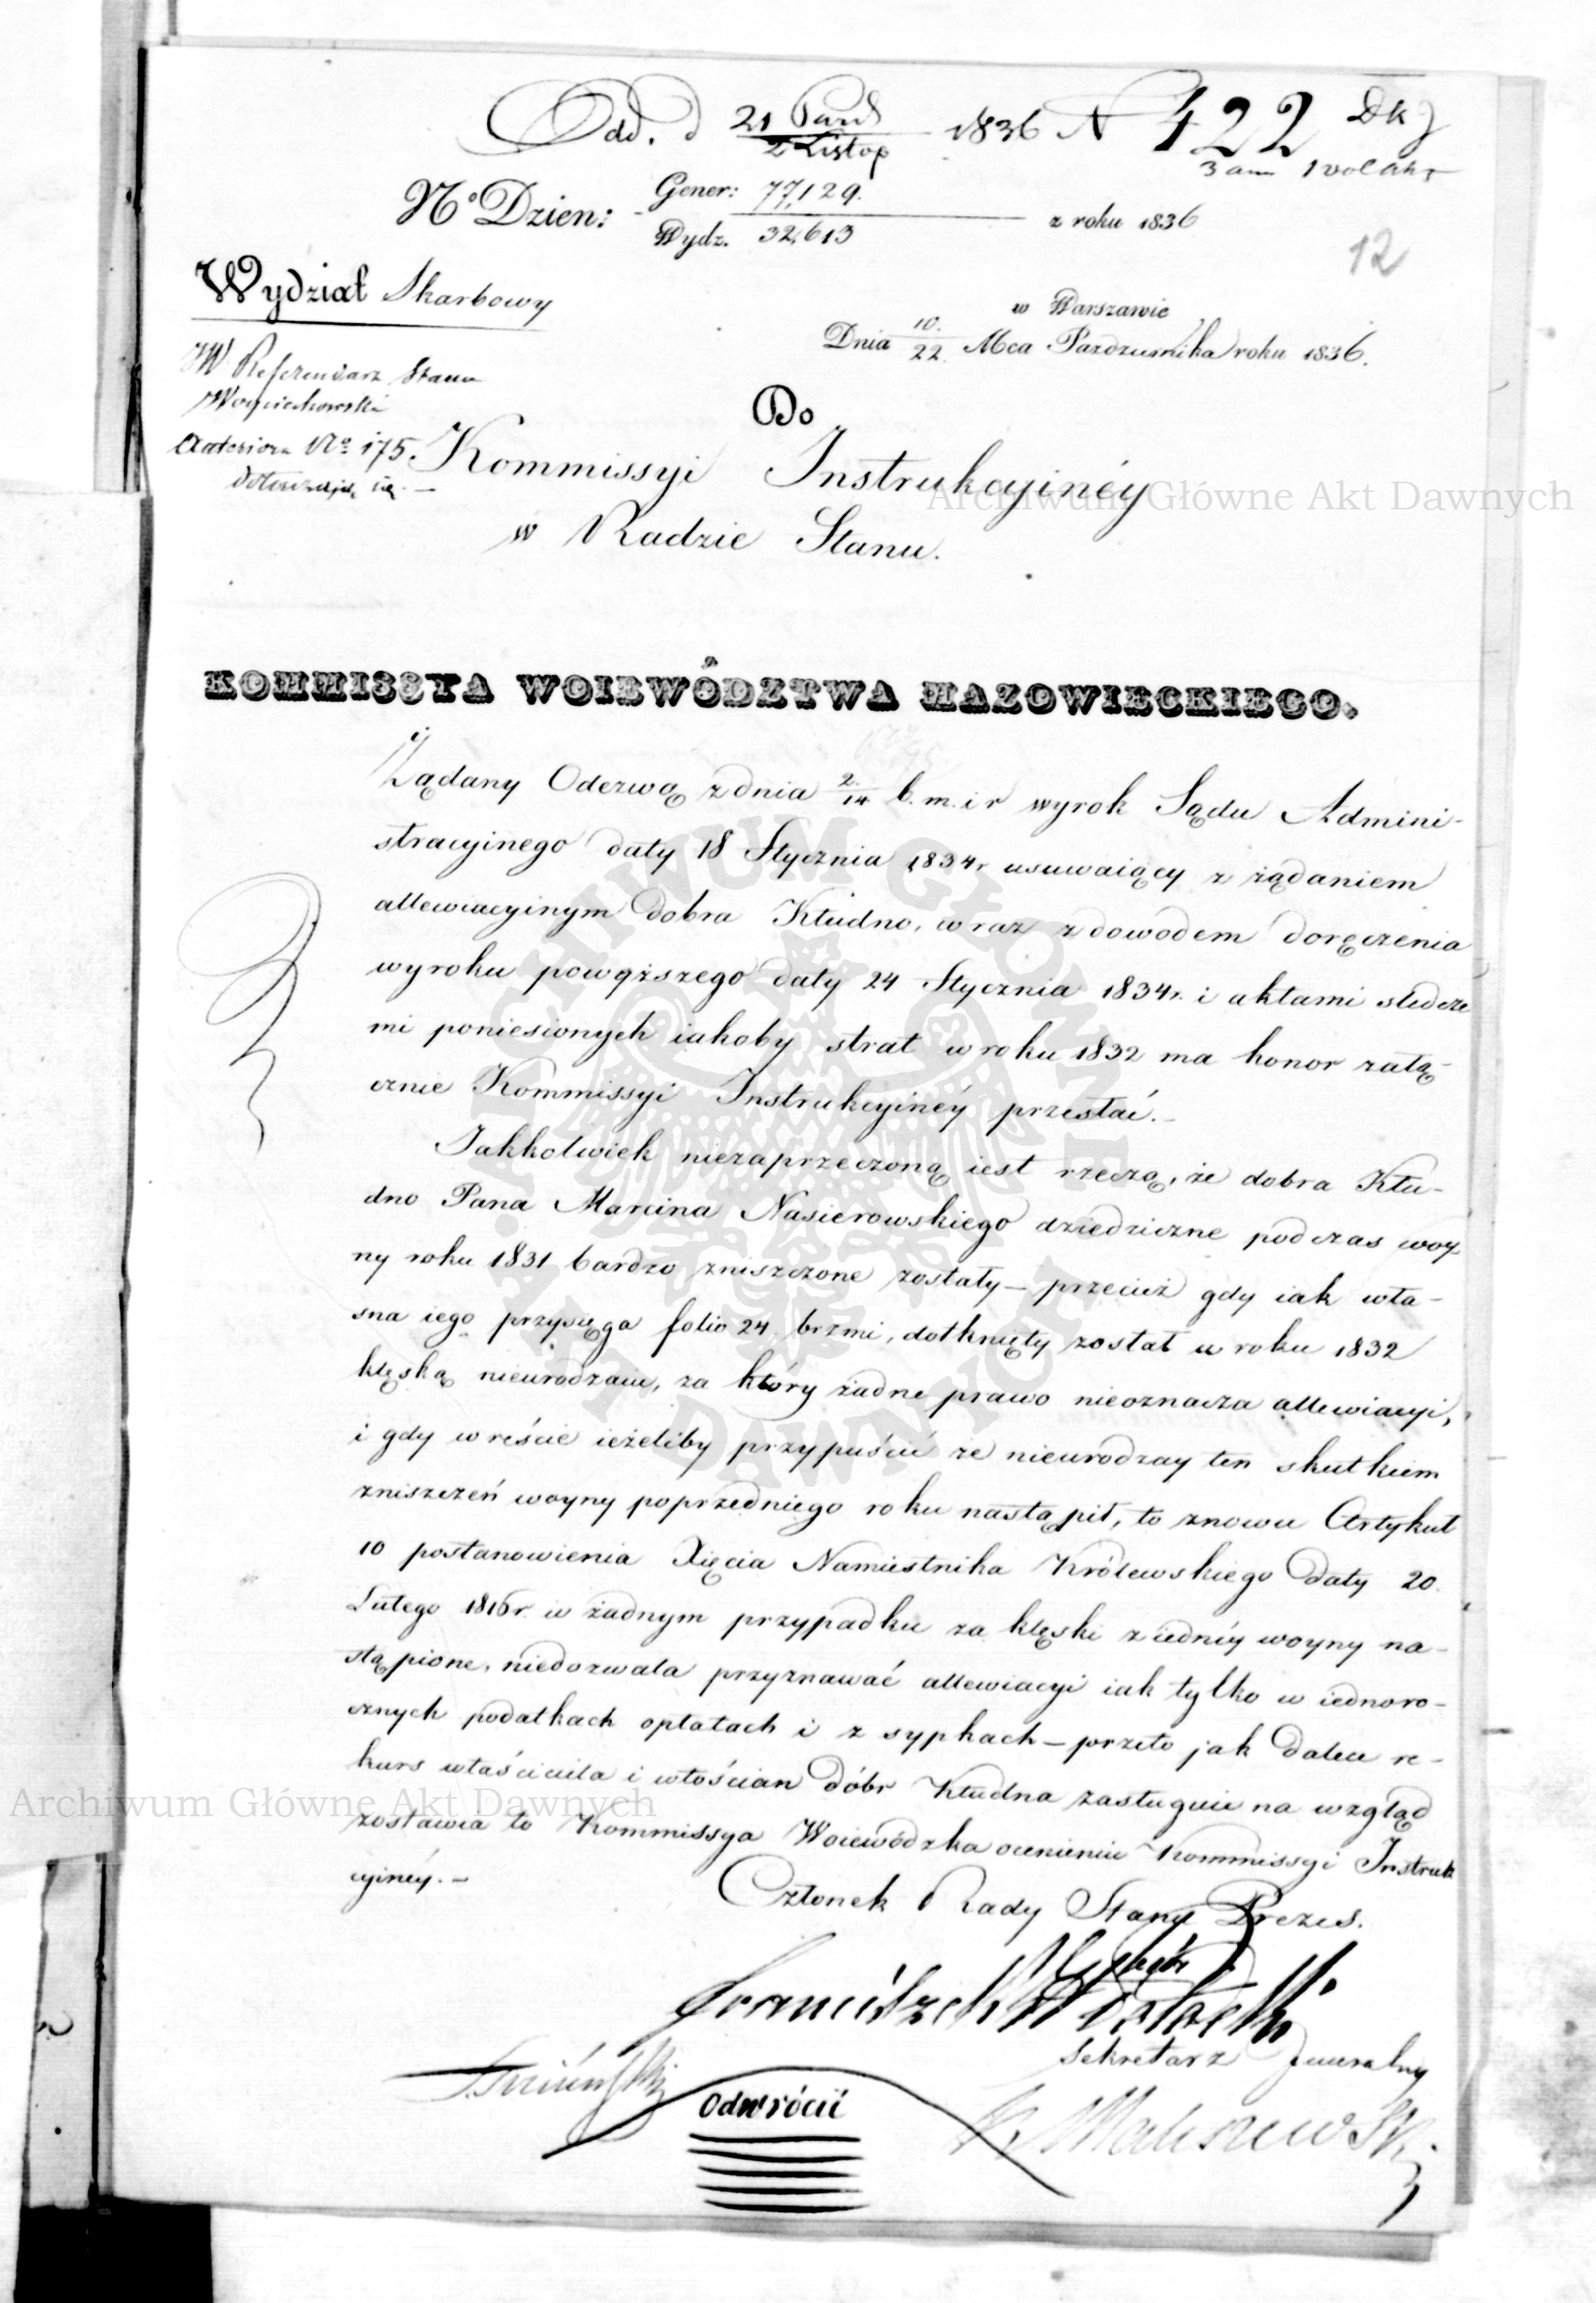 Odd. d 21 Paźd / 2 Listop 1836 N 422 Dk
3 an 1 vol akt
No Dzien: Gener: 77,129. / Wydz. 32,613 z roku 1836
12
Wydział Skarbowy
w Warszawie
Dnia 10/22 Mca Pazdziernika roku 1836.
JW Referendarz Stanu
Woyciechowski
No 175.
Do
Kommissyi Instrukcyinéy
w Radzie Stanu.
KOMMISSYA WOIEWÓDZTWA MAZOWIECKIEGO.
Żądany Odezwą z dnia 2/14 b. m. i r wyrok Sądu Admini-
stracyinego daty 18 Stycznia 1834r usuwaiący z żądaniem
allewiacyinym dobra Kłudno, wraz z dowodem doręczenia
wyroku powyższego daty 24 Stycznia 1834r. i aktami sledcze
mi poniesionych iakoby strat w roku 1832 ma honor załą-
cznie Kommissyi Instrukcyinéy przesłać.-
Jakkolwiek niezaprzeczoną iest rzeczą, że dobra Kłu-
dno Pana Marcina Nasierowskiego dziedziczne podczas woy
ny roku 1831 bardzo zniszczone zostały - przecież gdy iak wła-
sna iego przysięga folio 24 brzmi, dotknięty został w roku 1832
klęską nieurodzaiu, za który żadne prawo nieoznacza allewiacyi,
i gdy w reście ieżeliby przypuścić że nieurodzay ten skutkiem
zniszczeń woyny poprzedniego roku nastąpił, to znowu Artykuł
10 postanowienia Xięcia Namiestnika Królewskiego daty 20.
Lutego 1816r. w żadnym przypadku za klęski z iednéy woyny na-
stąpione, niedozwala przyznawać allewiacyi iak tylko w iednoro-
cznych podatkach opłatach i zsypkach - przeto jak dalece re-
kurs właściciela i włościan dóbr Kłudna zasługuie na wzgląd
zostawia to Kommissya Woiewódzka ocenieniu Kommissyi Instruk
cyinéy. -
Członek Rady Stanu Prezes.
Franciszek
Sekretarz Jeneralny
Odwrócić
Archiwum Główne Akt Dawnych
Archiwum Główne Akt Dawnych
ARCHIWUM GŁÓWNE AKT DAWNYCH